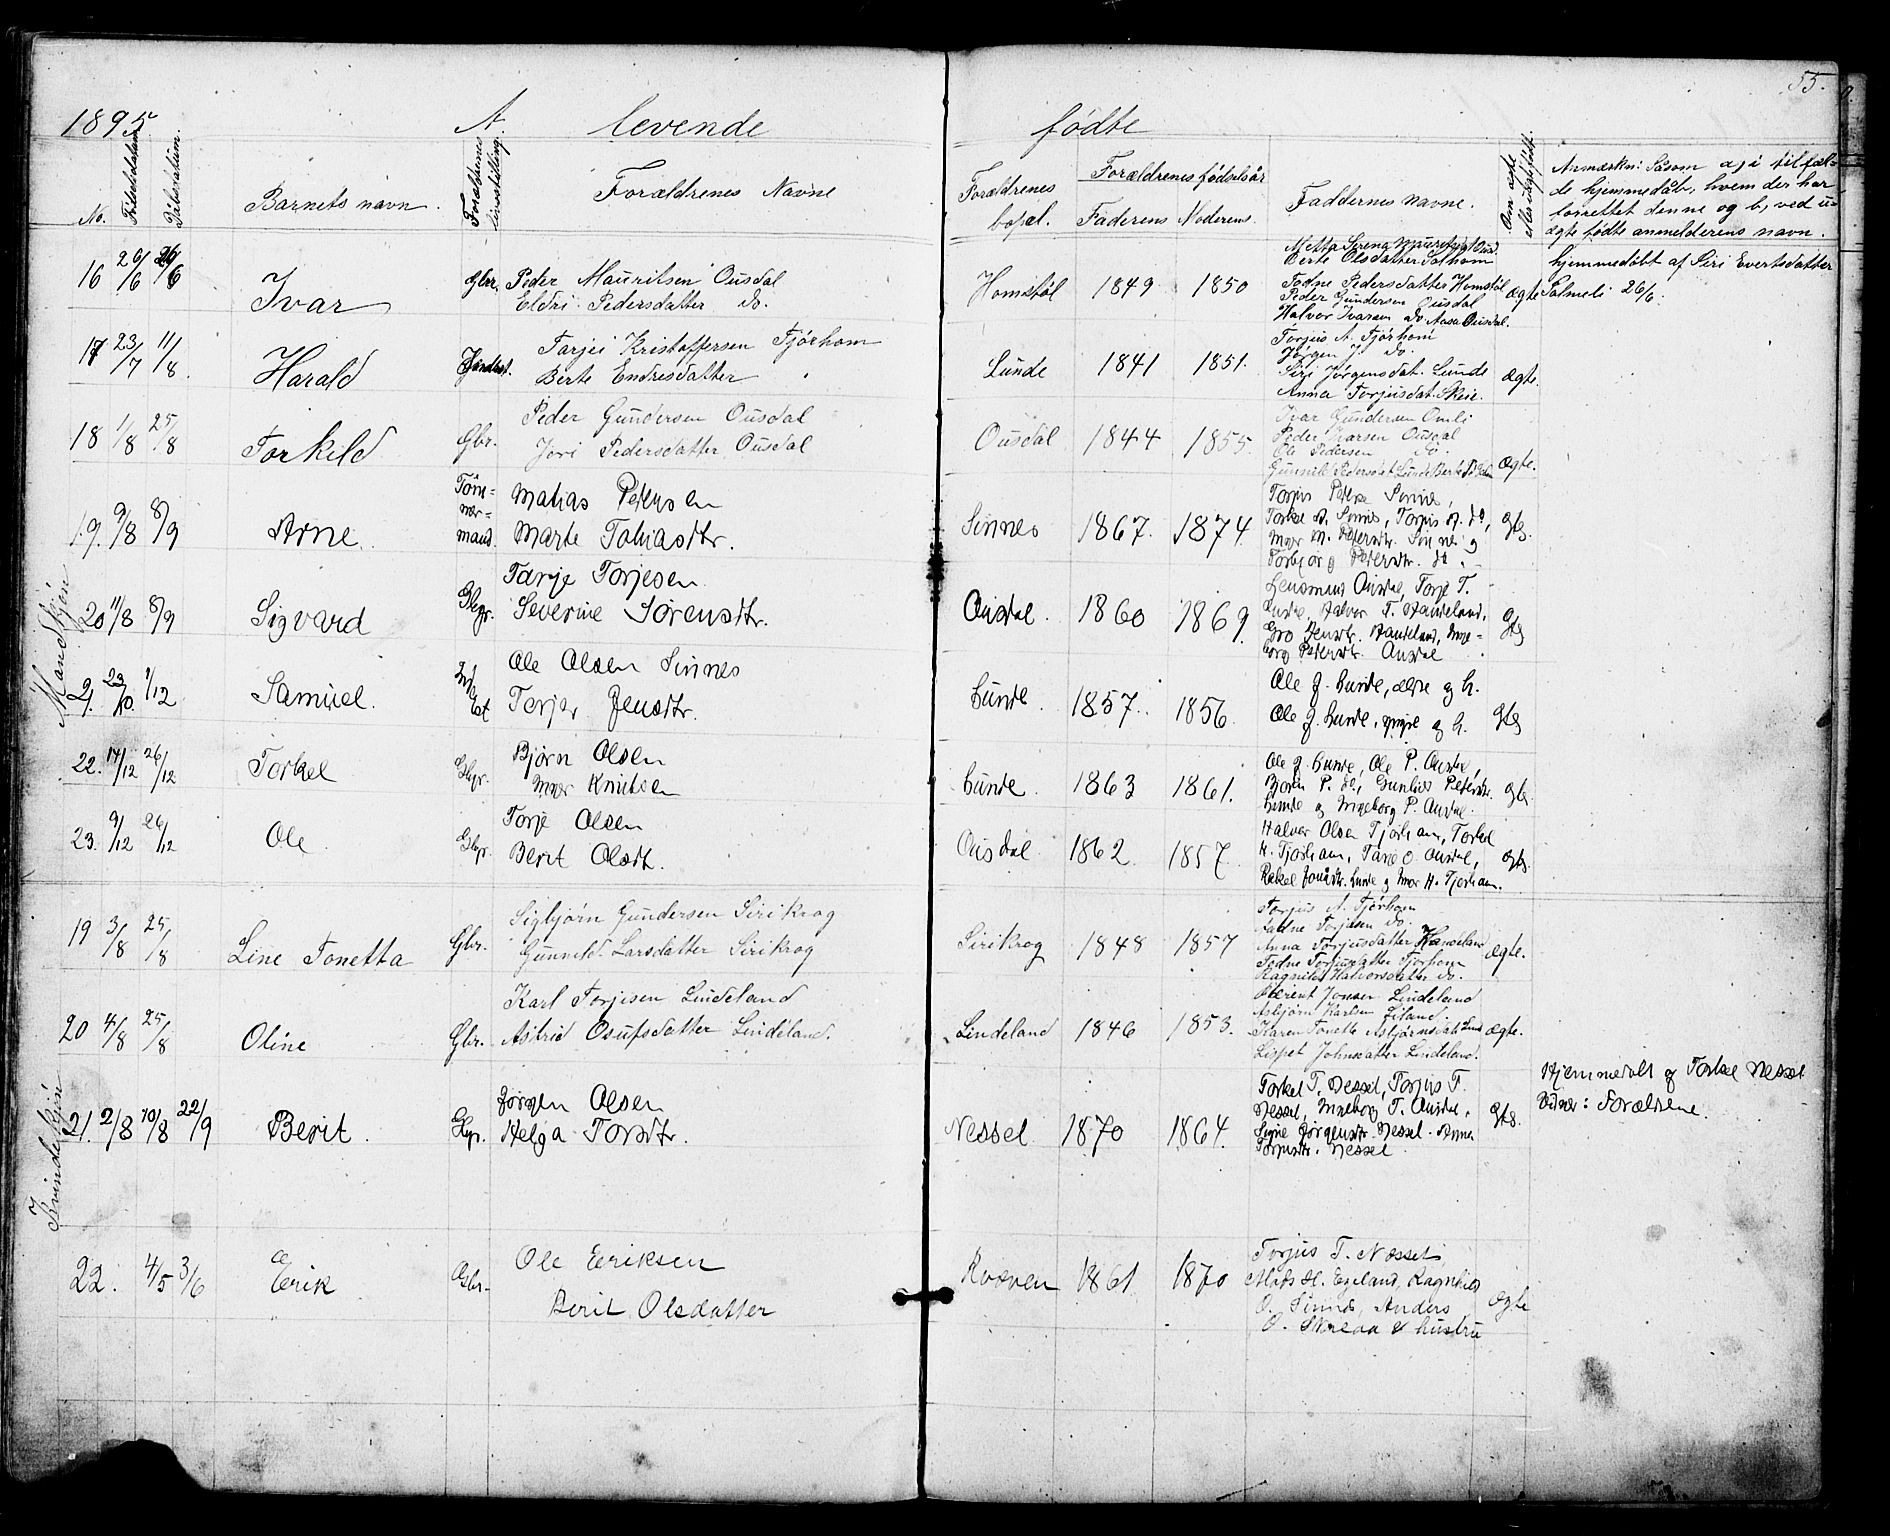 55.
1895. A. levende fødte
No. Fødselsdatum. Dåbsdatum. Barnets navn. Forældrenes livsstilling. Forældrenes Navne
Forældrenes bopæl. Forældrenes fødselsår Faderens Moderens. Faddernes navne. Om ægte eller uægte født.
Anmærkn: Såsom a, i tilfæl-
de hjemmedåb, hvem der har
forrettet denne og b, ved u-
ægte fødte anmelderens navn.
Mandkjøn
16 26/6 26/6 Ivar Gbr. Peder Mauritsen Ousdal
Eldri Pedersdatter do.
Homstøl 1849 1850
Berte Olsdatter Solhom
Todne Pedersdatter Homstøl
Peder Gundersen Ousdal
Halvor Ivarsen do Aasa Ousdal.
ægte
hjemmedøbt af Siri Evertsdatter
Salmeli 26/6.
17 23/7 11/8 Harald Tarjei Kristoffersen Fjørhom
Berte Endresdatter
Lunde 1841 1851.
Torjus A. Tjørhom
Jørgen J. do.
Siri Jørgensdat. Lunde
Anna Torjusdat. Skeie.
ægte.
18 1/8 25/8 Torkild Gbr. Peder Gundersen Ousdal
Jori Pedersdatter Ousdal
Ousdal 1844 1855.
Ivar Gundersen Omli
Peder Ivarsen Ousdal
Ole Pedersen do.
Gunnild Pedersdat Lunde Berte
ægte.
19. 9/8 8/9 Arne. Tøm-
mer-
mand. Mathias Petersen
Marte Tobiasdtr.
Sinnes 1867. 1874.
Torjus Peterse Sinnes,
Torkel A. Sinnes, Torjus A. do,
M. Petersdtr. Sinnes og
Torbjør g Petersdtr. do.
gte.
20 11/8 8/9 Sigvard Gbr. Tarje Torjesen
Severine Sørensdtr.
Ousdal. 1860 1869.
Lensmand Ousdal, Torje T.
Lunde, Halvor T. Haudeland,
Gro Jensdtr. Haudeland, Inge-
borg Petersdtr. Ousdal.
gte
21. 23/10. 1/12 Samuel. Ole Olsen Sinnes
Terjer Jensdtr.
Lunde. 1857. 1856.
Ole J. Lunde, ældre og h.
Ole J. Lunde, yngre og h.
gte
22. 17/12 26/12 Torkel Gbr. Bjørn Olsen
Knutsen
Lunde. 1863 1861.
Ole J. Lunde, Ole P. Ousdal,
Bjoren P. do, Gunhild Petersdtr.
Lunde og Ingeborg P. Ousdal.
gte
23. 9/12 26/12 Ole. Gbr. Torje Olsen
Berit Olsdt.
Ousdal. 1862. 1857.
Halvor Olsen Tjorham, Torkel
H. Tjorham, Tarje O. Ousdal,
Rakel Jonasdtr. Lunde og H. Tjorham.
gte
Kvindekjøn
19 3/8 25/8 Line Tonetta Gbr. Sigbjørn Gundersen Sirikrog
Gunnild Larsdatter Sirikrog
Sirikrog 1848 1857
Torjus A. Tjørhom
Aadne Torjesen do.
Anna Torjusdatter Haudeland
Todne Torjusdatter Tjorhom
Ragnild Halvorsdatter do.
ægte.
20 4/8 25/8 Oline Gbr. Karl Torjesen Lindeland
Astrid Osufsdatter Lindeland.
Lindeland 1846 1853.
Berent Jonsen Lindeland
Asbjørn Karlsen Eiland.
Karen Tonette Asbjørnsdat. Lind
Lispet Johnsdatter Lindeland.
ægte.
21. 2/8 10/8 22/9 Berit. Gbr. Jørgen Olsen
Helga Tordtr.
Nessel. 1870 1864.
Torkel T. Nessel, Torjus T.
Nessel, Ingeborg T. Ousdal,
Signe Jørgensdtr. Nessel. Anna
Torjusdtr. Nessel.
gte.
Hjemmedøbt af Torkel Nessel
Vidner: Forældrene.
22. 4/5 3/6 Erik Gbr. Ole Eriksen
Berit Olsdatter
Kvæven 1861 1870
Torjus T. Næsset,
H. Egeland, Ragnhild
O. Sinnes, Anders
O. Skreaa & hustru
ægte